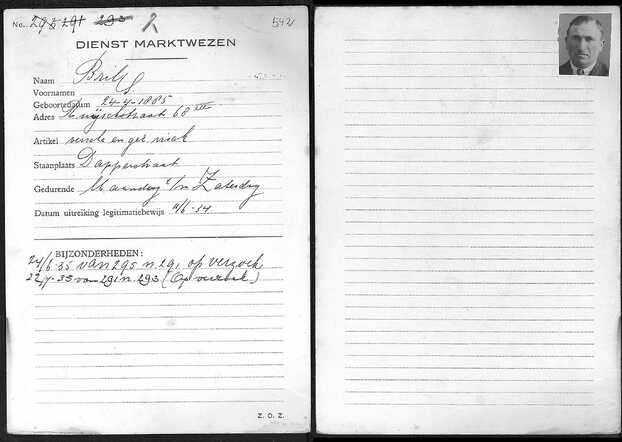 No. 295 291 293 R 542
DIENST MARKTWEZEN
Naam Bril
Voornamen S.
Geboortedatum 24-4-1885
Adres Ruijschstraat 68 III
Artikel versche en ger. visch
Staanplaats Dapperstraat
Gedurende Maandag t/m Zaterdag
Datum uitreiking legitimatiebewijs 11/6-34
BIJZONDERHEDEN:
24/6-35 van 295 n. 291 op verzoek
22/7-35 van 291 n. 293 (Op verzoek)
Z. O. Z.